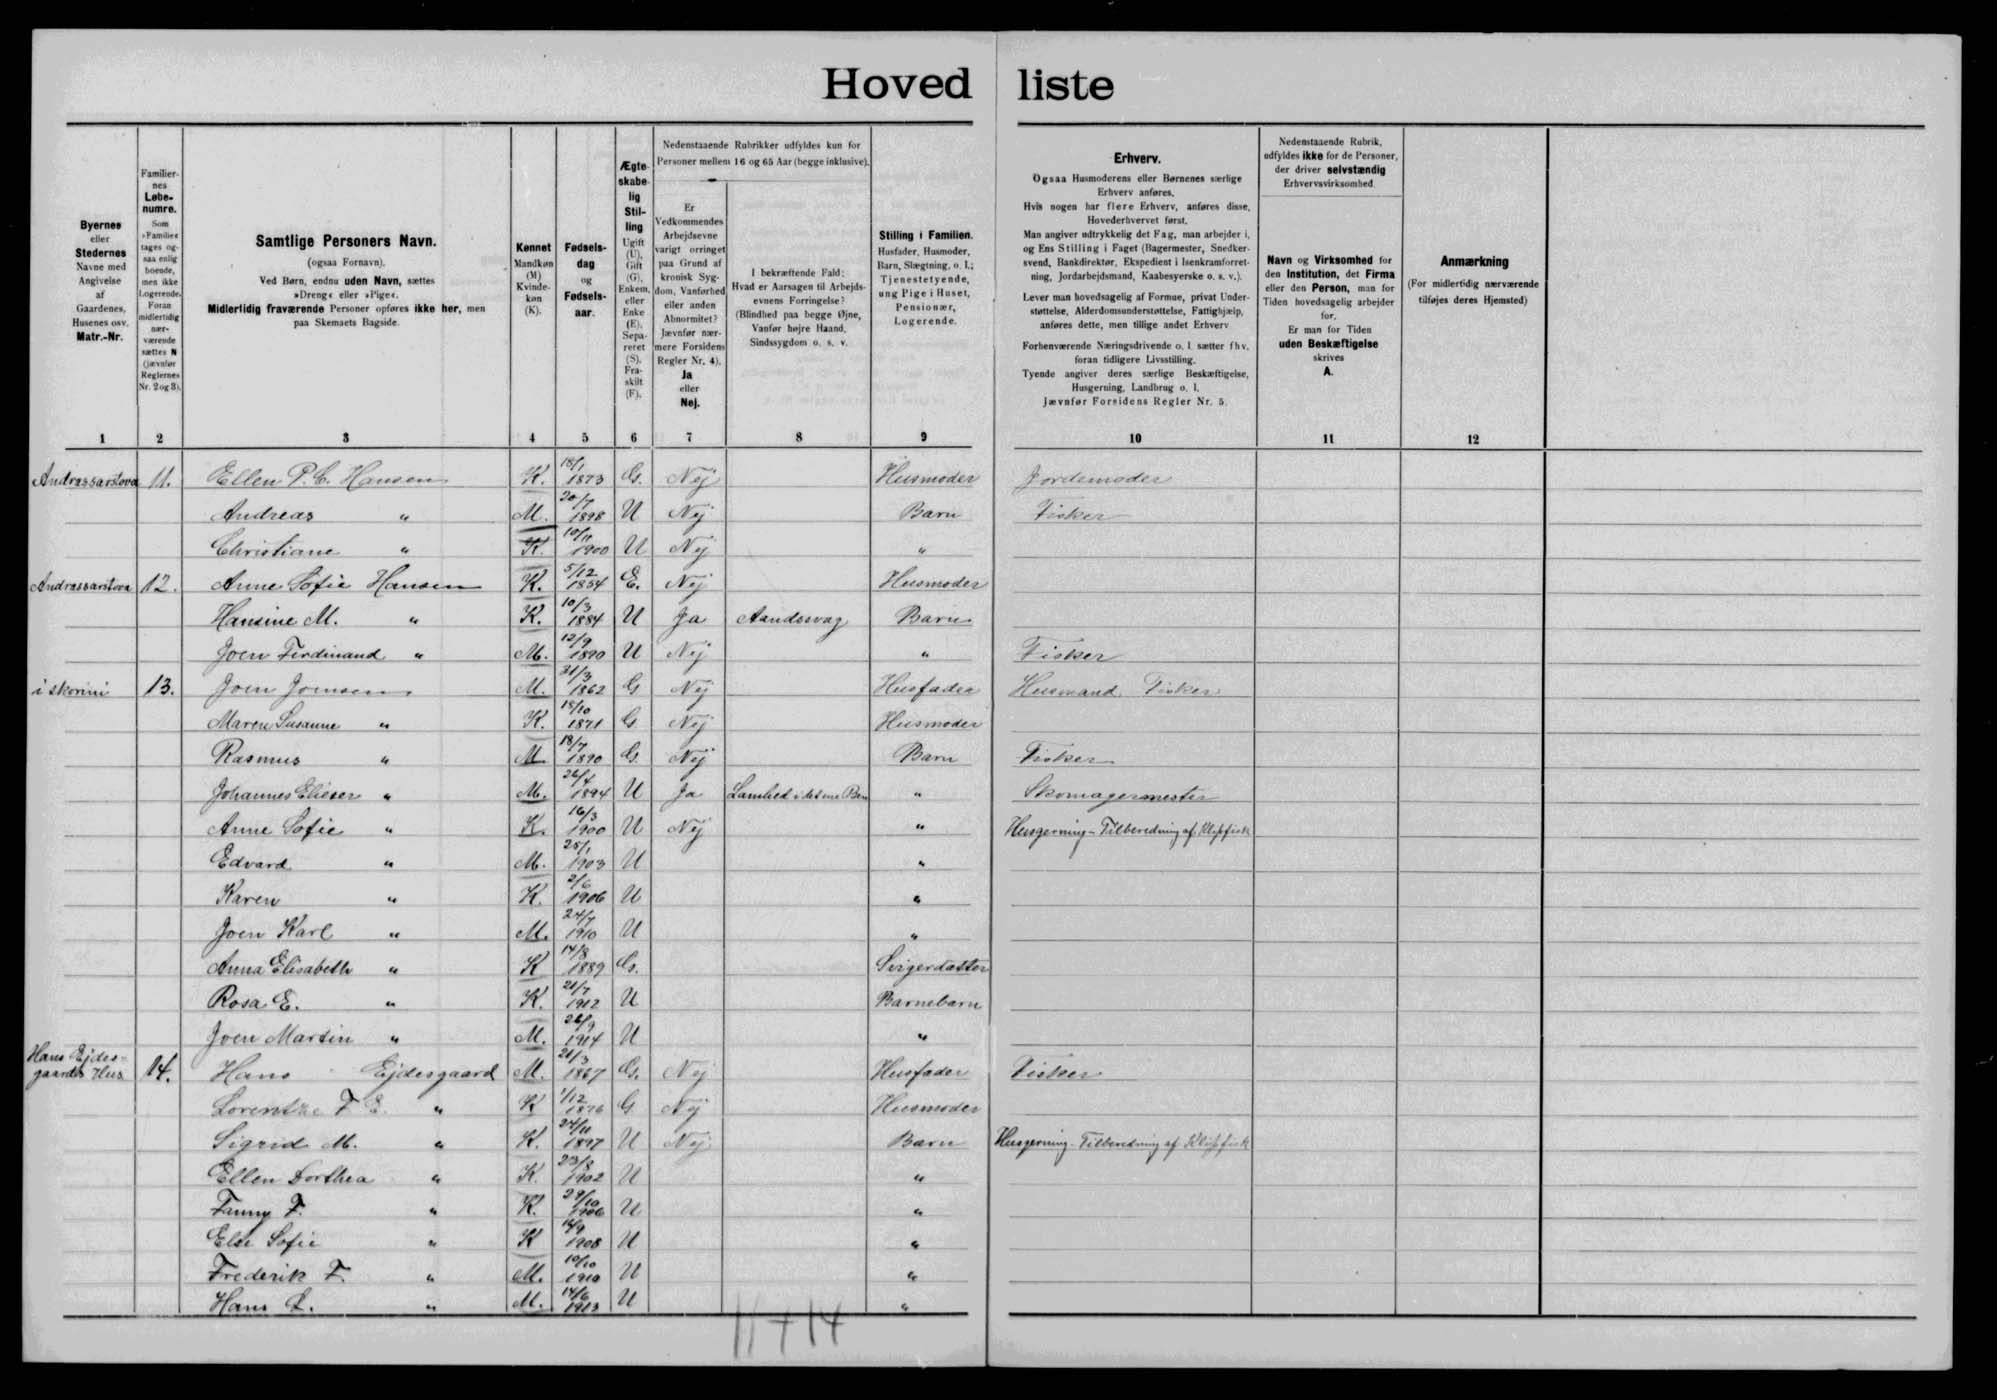 Hoved liste
Byernes
eller
Stedernes
Navne med
Angivelse
af
Gaardenes,
Husenes osv.
Matr.-Nr.
Familier-
nes
Løbe-
numre.
Som
»Familie«
tages og-
saa enlig
boende,
men ikke
Logerende.
Foran
midlertidig
nær-
værende
sættes N
(jævnfør
Reglernes
Nr. 2 og 3).
Samtlige Personers Navn.
(ogsaa Fornavn).
Ved Børn, endnu uden Navn, sættes
»Dreng« eller »Pige«.
Midlertidig fraværende Personer opføres ikke her, men
paa Skemaets Bagside.
Kønnet
Mandkøn
(M)
Kvinde-
køn
(K).
Fødsels-
dag
og
Fødsels-
aar.
Ægte-
skabe-
lig
Stil-
ling
Ugift
(U),
Gift
(G),
Enkem.
eller
Enke
(E),
Sepa-
reret
(S),
Fra-
skilt
(F).
Nedenstaaende Rubrikker udfyldes kun for
Personer mellem 16 og 65 Aar (begge inklusive).
Er
Vedkommendes
Arbejdsevne
varigt forringet
paa Grund af
kronisk Syg-
dom, Vanførhed
eller anden
Abnormitet?
Jævnfør nær-
mere Forsidens
Regler Nr. 4).
Ja
eller
Nej.
I bekræftende Fald:
Hvad er Aarsagen til Arbejds-
evnens Forringelse?
(Blindhed paa begge Øjne,
Vanfør højre Haand,
Sindssygdom o. s. v.
Stilling i Familien.
Husfader, Husmoder,
Barn, Slægtning, o. l.;
Tjenestetyende,
ung Pige i Huset,
Pensionær,
Logerende.
Erhverv.
Ogsaa Husmoderens eller Børnenes særlige
Erhverv anføres.
Hvis nogen har flere Erhverv, anføres disse,
Hovederhvervet først.
Man angiver udtrykkelig det Fag, man arbejder i,
og Ens Stilling i Faget (Bagermester, Snedker-
svend, Bankdirektør, Ekspedient i Isenkramforret-
ning, Jordarbejdsmand, Kaabesyerske o. s. v.).
Lever man hovedsagelig af Formue, privat Under-
støttelse, Alderdomsunderstøttelse, Fattighjælp,
anføres dette, men tillige andet Erhverv
Forhenværende Næringsdrivende o. l. sætter fhv.
foran tidligere Livsstilling.
Tyende angiver deres særlige Beskæftigelse,
Husgerning, Landbrug o. l.
Jævnfør Forsidens Regler Nr. 5.
Nedenstaaende Rubrik,
udfyldes ikke for de Personer,
der driver selvstændig
Erhvervsvirksomhed.
Navn og Virksomhed for
den Institution, det Firma
eller den Person, man for
Tiden hovedsagelig arbejder
for.
Er man for Tiden
uden Beskæftigelse
skrives
A.
Anmærkning
(For midlertidig nærværende
tilføjes deres Hjemsted)
1 2 3 4 5 6 7 8 9 10 11 12
Andrassarstova 11. Ellen P. C. Hansen K. 18/1 1873 G. Nej Husmoder Jordemoder
Andreas " M. 20/7 1898 U Nej Barn Fisker
Christiane " K. 10/11 1900 U Nej "
Andrassarstova 12. Anne Sofie Hansen K. 5/12 1854 E. Nej Husmoder
Hansine M. " K. 10/3 1884 U Ja Aandssvag Barn
Joen Ferdinand " M. 12/9 1890 U Nej " Fisker
i skorini 13. Joen Joensen M. 31/3 1862 G Nej Husfader Husmand, Fisker
Maren Susanne " K. 18/10 1871 G Nej Husmoder
Rasmus " M 18/7 1890 G. Nej Barn Fisker
Johannes Elieser " M. 26/4 1894 U Ja Lamhed i det ene Ben " Skomagermester
Anne Sofie " K. 16/3 1900 U Nej " Husgerning - Tilberedning af Klipfisk
Edvard " M. 25/1 1903 U "
Karen " K. 2/6 1906 U "
Joen Karl " M. 24/7 1910 U "
Anna Elisabeth " K 14/8 1889 G. Svigerdatter
Rosa E. " K. 21/7 1912 U Barnebarn
Joen Martin " M. 26/9 1914 U "
Hans Ejdes=
gaards Hus 14. Hans Ejdesgaard M. 21/3 1867 G. Nej Husfader Fisker
Lorentze F. E. " K 1/12 1876 G Nej Husmoder
Sigrid M. " K. 24/11 1897 U Nej Barn Husgerning - Tilberedning af Klipfisk
Ellen Dorthea " K. 23/8 1902 U "
Fanny F. " K. 29/10 1906 U "
Else Sofie " K 14/9 1908 U "
Frederik F. " M. 10/10 1910 U "
Hans L. " M. 14/6 1913 U "
11 + 14